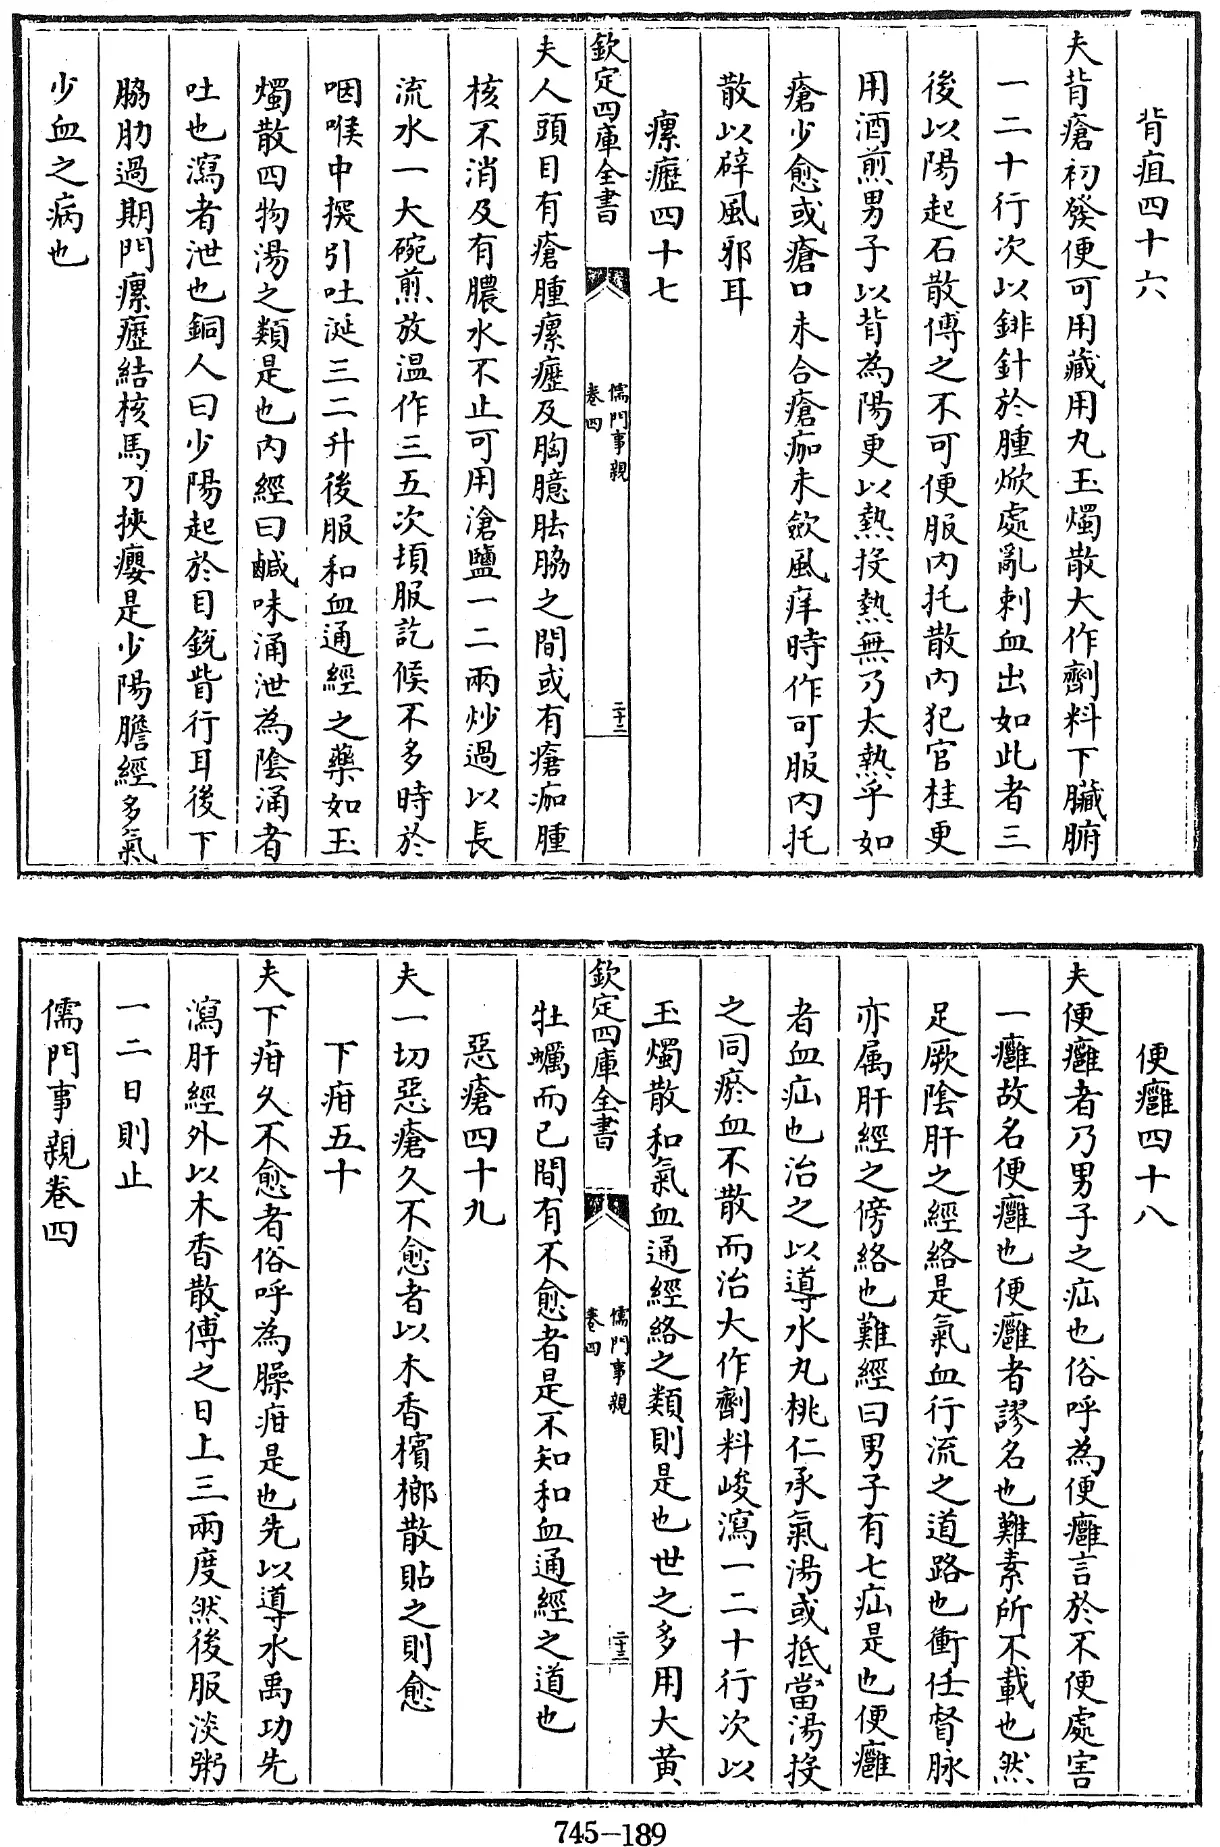 背疽四十六
夫背瘡初發便可用藏用丸玉燭散大作劑料下臟腑
一二十行次以鈹針於腫焮處亂刺血出如此者三
後以陽起石散傅之不可便服内托散内犯官桂更
用酒煎男子以背為陽更以熱投熱無乃太熱乎如
瘡少愈或瘡口未合瘡痂未斂風痒時作可服内托
散以辟風邪耳
瘰癧四十七
欽定四庫全書
儒門事親
卷四
二十二
夫人頭目有瘡腫瘰癧及胸臆胠脇之間或有瘡痂腫
核不消及有膿水不止可用滄鹽一二兩炒過以長
流水一大碗煎放温作三五次頓服訖候不多時於
咽喉中探引吐涎三二升後服和血通經之藥如玉
燭散四物湯之類是也内經曰鹹味涌泄為陰涌者
吐也瀉者泄也銅人曰少陽起於目鋭眥行耳後下
脇肋過期門瘰癧結核馬刀挾癭是少陽膽經多氣
少血之病也
便癰四十八
夫便癰者乃男子之疝也俗呼為便癰言於不便處害
一癰故名便癰也便癰者謬名也難素所不載也然
足厥陰肝之經絡是氣血行流之道路也衝任督脉
亦属肝經之傍絡也難經曰男子有七疝是也便癰
者血疝也治之以導水丸桃仁承氣湯或抵當湯投
之同瘀血不散而治大作劑料峻瀉一二十行次以
玉燭散和氣血通經絡之類則是也世之多用大黄
欽定四庫全書
儒門事親
卷四
二十三
牡蠣而已間有不愈者是不知和血通經之道也
惡瘡四十九
夫一切惡瘡久不愈者以木香檳榔散貼之則愈
下疳五十
夫下疳久不愈者俗呼為臊疳是也先以導水禹功先
瀉肝經外以木香散傅之日上三兩度然後服淡粥
一二日則止
儒門事親卷四
745-189